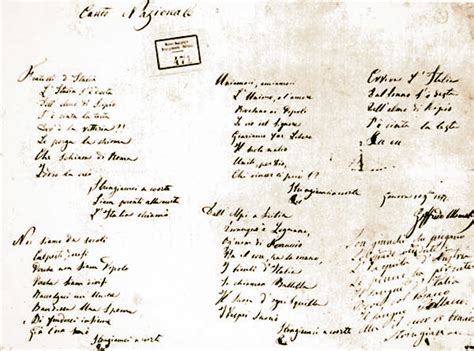 Canto Nazionale
471
Fratelli d'Italia
L'Italia s'è desta
Dell'elmo di Scipio
S'è cinta la testa
Dov'è la vittoria?!!
Le porga la chioma
Che schiava di Roma
Iddio la creò
Stringiamci a coorte
Siam pronti alla morte
L'Italia chiamò
Noi siamo da secoli
Calpesti, derisi
Perchè non siam Popolo
Perchè siam divisi
Raccolgaci un'Unica
Bandiera una Speme
Di fonderci insieme
Già l'ora suonò
Stringiamci a coorte
Uniamoci, amiamoci
L'Unione, e l'amore
Rivelano ai Popoli
Le vie del Signore
Giuriamo far Libero
Il suolo natio
Uniti per Dio,
Chi vincer ci può!?
Stringiamci a coorte
Dall'Alpi a Sicilia
Dovunque è Legnano,
Ogn'uom di Ferruccio
Ha il core, ha la mano,
I bimbi d'Italia
Si chiaman Balilla
Il suon d'ogni squilla
I Vespri suonò
Stringiamci a coorte
Evviva l'Italia
Dell'elmo di Scipio
S'è cinta la testa
Son giunchi che piegano
Le spade vendute
L'Aquila d'Austria
Le penne ha perdute